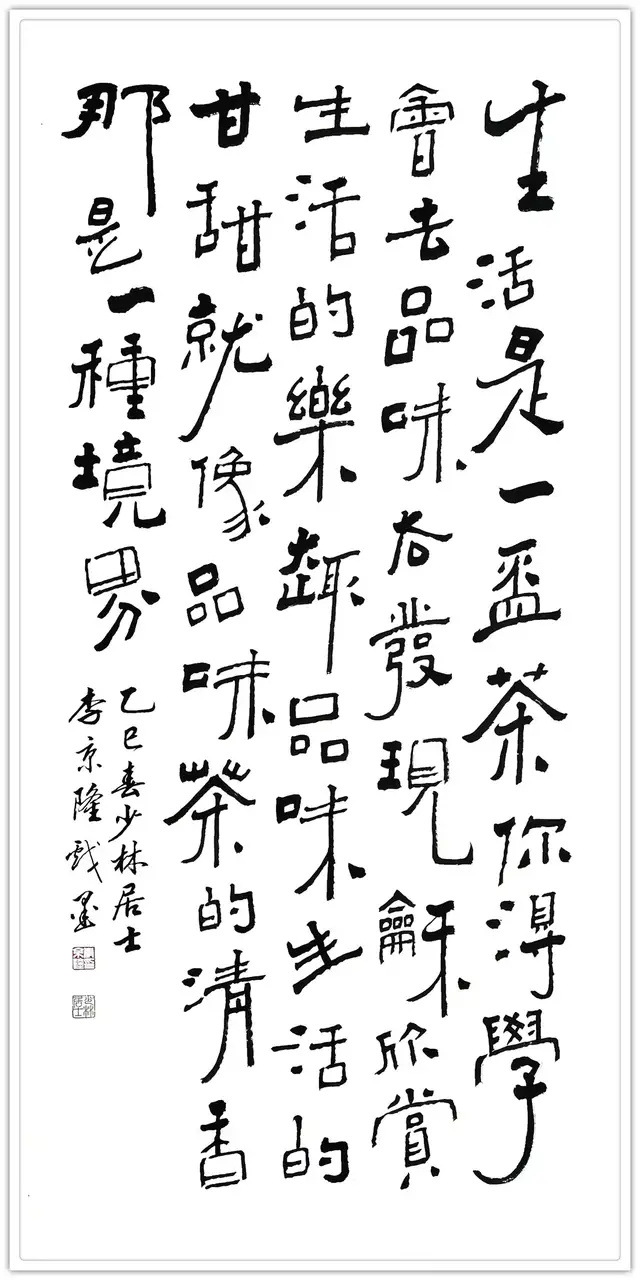 生活是一盃茶你得學
會去品味去發現龢欣賞
生活的樂趣品味生活的
甘甜就像品味茶的清香
那是一種境界
乙巳春少林居士
李京隆戲墨
少林居士